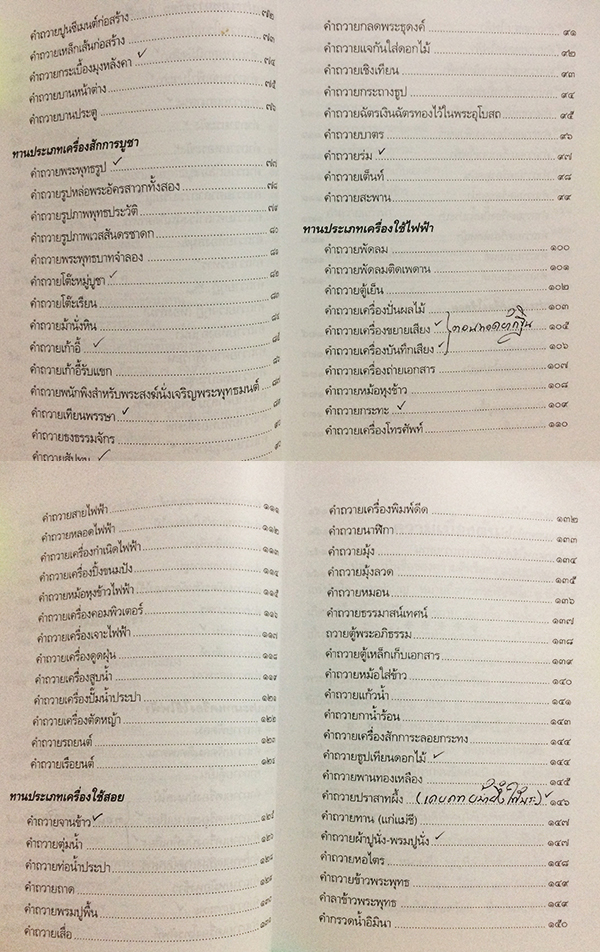 คำถวายปูนซีเมนต์ก่อสร้าง ๗๒
คำถวายเหล็กเส้นก่อสร้าง ๗๓
คำถวายกระเบื้องมุงหลังคา ๗๔
คำถวายบานหน้าต่าง ๗๕
คำถวายบานประตู ๗๖
ทานประเภทเครื่องสักการบูชา
คำถวายพระพุทธรูป ๗๗
คำถวายรูปหล่อพระอัครสาวกทั้งสอง ๗๘
คำถวายรูปภาพพุทธประวัติ ๗๙
คำถวายรูปภาพเวสสันดรชาดก ๘๐
คำถวายพระพุทธบาทจำลอง
คำถวายโต๊ะหมู่บูชา
คำถวายโต๊ะเรียน
คำถวายม้านั่งหิน
คำถวายเก้าอี้
คำถวายเก้าอี้รับแขก
คำถวายพนักพิงสำหรับพระสงฆ์นั่งเจริญพระพุทธมนต์
คำถวายเทียนพรรษา
คำถวายธงธรรมจักร
คำถวายสัปทน
คำถวายกลดพระธุดงค์ ๙๑
คำถวายแจกันใส่ดอกไม้ ๙๒
คำถวายเชิงเทียน ๙๓
คำถวายกระถางธูป ๙๔
คำถวายฉัตรเงินฉัตรทองไว้ในพระอุโบสถ ๙๕
คำถวายบาตร ๙๖
คำถวายร่ม ๙๗
คำถวายเต็นท์ ๙๘
คำถวายสะพาน ๙๙
ทานประเภทเครื่องใช้ไฟฟ้า
คำถวายพัดลม ๑๐๐
คำถวายพัดลมติดเพดาน ๑๐๑
คำถวายตู้เย็น ๑๐๒
คำถวายเครื่องปั่นผลไม้ ๑๐๓
คำถวายเครื่องขยายเสียง ๑๐๕
คำถวายเครื่องบันทึกเสียง ๑๐๖
คำถวายเครื่องถ่ายเอกสาร ๑๐๗
คำถวายหม้อหุงข้าว ๑๐๘
คำถวายกระทะ ๑๐๙
คำถวายเครื่องโทรศัพท์ ๑๑๐
คำถวายสายไฟฟ้า ๑๑๑
คำถวายหลอดไฟฟ้า ๑๑๒
คำถวายเครื่องกำเนิดไฟฟ้า ๑๑๓
คำถวายเครื่องปิ้งขนมปัง ๑๑๔
คำถวายหม้อหุงข้าวไฟฟ้า ๑๑๕
คำถวายเครื่องคอมพิวเตอร์ ๑๑๖
คำถวายเครื่องเจาะไฟฟ้า ๑๑๗
คำถวายเครื่องดูดฝุ่น ๑๑๘
คำถวายเครื่องสูบน้ำ ๑๑๙
คำถวายเครื่องปั๊มน้ำประปา
คำถวายเครื่องตัดหญ้า ๑๒๒
คำถวายรถยนต์
คำถวายเรือยนต์
ทานประเภทเครื่องใช้สอย
คำถวายจานข้าว
คำถวายตุ่มน้ำ
คำถวายท่อน้ำประปา
คำถวายถาด
คำถวายพรมปูพื้น
คำถวายเสื่อ
คำถวายเครื่องพิมพ์ดีด ๑๓๒
คำถวายนาฬิกา ๑๓๓
คำถวายมุ้ง ๑๓๔
คำถวายมุ้งลวด ๑๓๕
คำถวายหมอน ๑๓๖
คำถวายธรรมาสน์เทศน์ ๑๓๗
ถวายตู้พระอภิธรรม ๑๓๘
คำถวายตู้เหล็กเก็บเอกสาร ๑๓๙
คำถวายหม้อใส่ข้าว ๑๔๐
คำถวายแก้วน้ำ ๑๔๑
คำถวายกาน้ำร้อน ๑๔๓
คำถวายเครื่องสักการะลอยกระทง ๑๔๔
คำถวายธูปเทียนดอกไม้ ๑๔๔
คำถวายพานทองเหลือง ๑๔๕
คำถวายปราสาทผึ้ง ๑๔๖
คำถวายทาน (แก่แม่ชี) ๑๔๗
คำถวายผ้าปูนั่ง-พรมปูนั่ง ๑๔๗
คำถวายหอไตร ๑๔๘
คำถวายข้าวพระพุทธ ๑๔๙
คำลาข้าวพระพุทธ ๑๔๙
คำกรวดน้ำอิมินา ๑๕๐